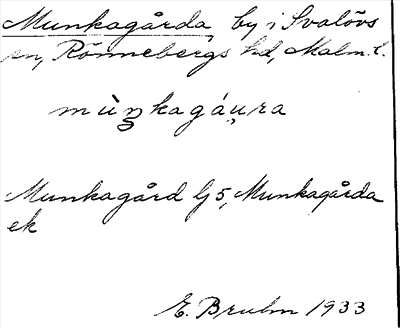 Munkagårda, by i Svalövs
sn, Rönnebergs hd, Malm. l.
mùŋkagáu̯ra
Munkagård Lj 5, Munkagårda
ek
E. Bruhn 1933